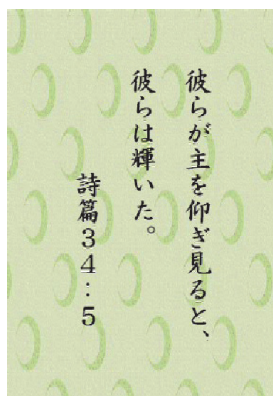 彼らが主を仰ぎ見ると、
彼らは輝いた。
詩篇34:5